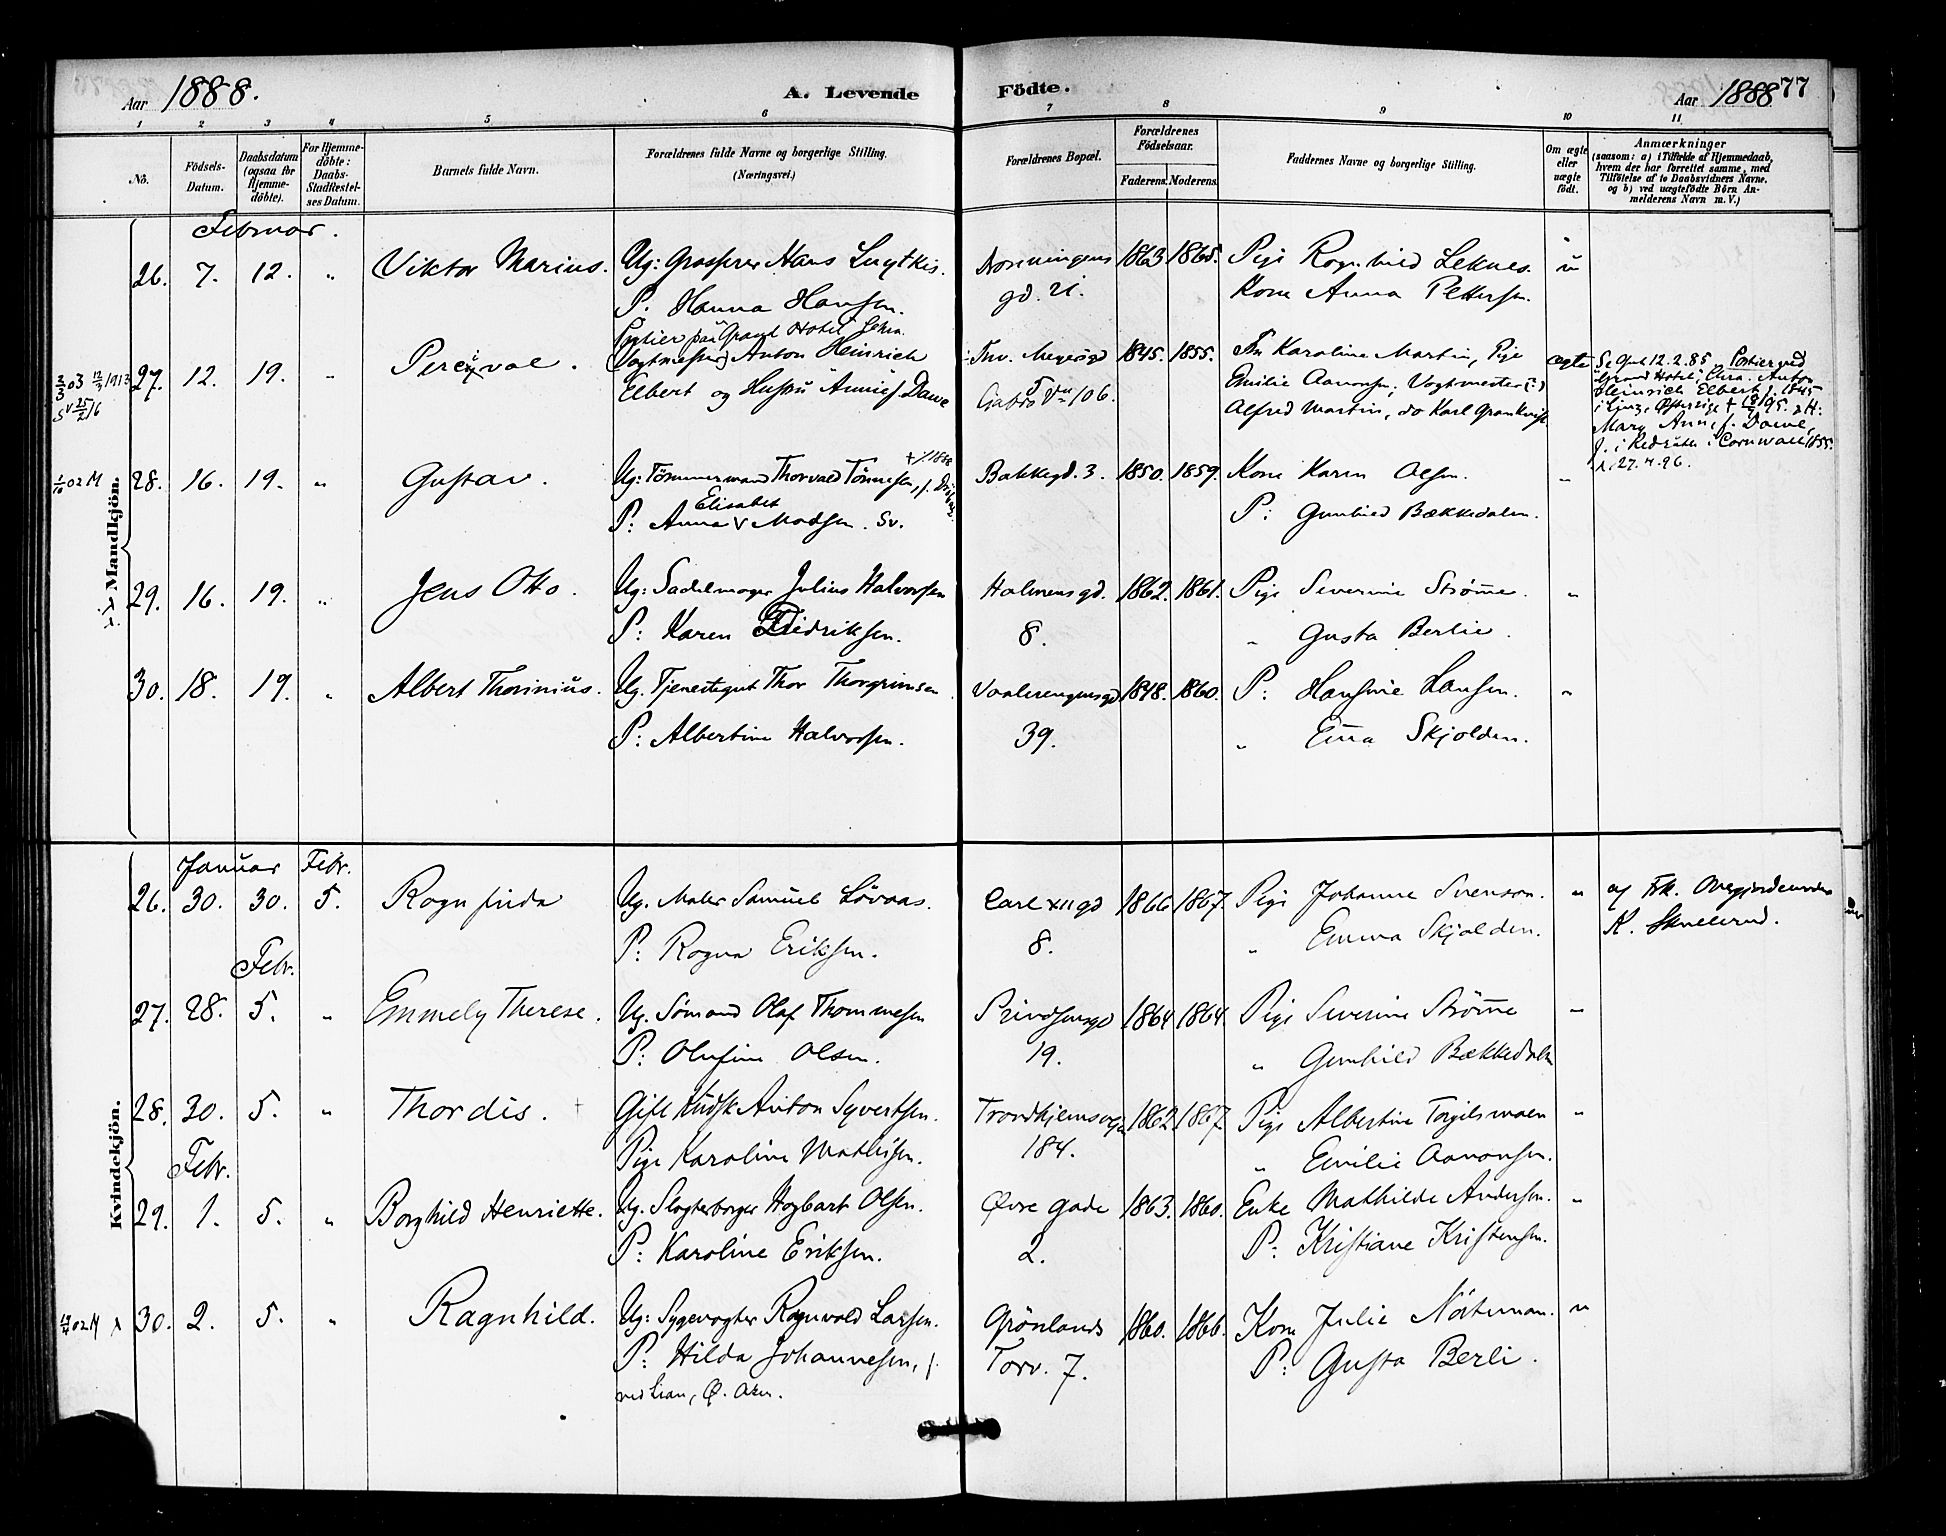 Aar 1888. A. Levende Födte. Aar 1888 77
1 2 3 4 5 6 7 8 9 10 11
No. Födsels-Datum. Daabsdatum (ogsaa for Hjemme-döbte). For Hjemme-döbte: Daabs-Stadfæstel-ses Datum. Barnets fulde Navn. Forældrenes fulde Navne og borgerlige Stilling. (Næringsvei.) Forældrenes Bopæl. Forældrenes Födselsaar. Faderens. Moderens. Faddernes Navne og borgerlige Stilling. Om ægte eller uægte födt. Anmærkninger (saasom: a) i Tilfælde af Hjemmedaab, hvem der har forrettet samme, med Tilföielse af to Daabsvidners Navne, og b) ved uægtefödte Börn An-melderens Navn m. V.)
Mandkjön.
Februar.
26. 7. 12. " Viktor Marius. Ug: Grosserer Hans Lugtkis. 1863 1865. Pige Ragnhild Leknes. u
P. Hanna Hansen. gd. 21. Kone Anna Pettersen.
Portier paa Grand Hotel
27. 12. 19. " Percival. Vogtmester Anton Heinrich Thv. Meyersgd 1845. 1855. Karoline Martin, Pige ægte Se Gul. 12.2.85, Portier ved
Elbert og Hustru Annie f. Dawe 106. Emilie Aanonsen, Vogtmester
Alfred Martin, do Karl Grankvist
"Grand Hotel", Chra. Anton
Heinrich Elbert, f. 1845
i Linz, Østerrige
Mary Ann, f. Dawe,
f. i Redruth i Cornwall 1855.
27.4.96.
28. 16. 19. " Gustav. Ug: Tömmermand Thorvald Tönnesen, Bakkegd. 3. 1850. 1859. Kone Karen Olsen. "
Elisabet
P: Anna V Madsen. Sv. P: Gunhild Bækkedalen.
29. 16. 19. " Jens Otto. Ug: Sadelmager Julius Halvorsen Holmensgd. 1862. 1861. Pige Severine Strömme. "
P: Karen Didriksen. 8. " Gusta Berlie.
30. 18. 19. " Albert Thorinius. Ug. Tjenestegut Thor Thorgrimsen Vaalerengensgd 1848. 1860. P: Hansine Hansen. "
P: Albertine Halvorsen. 39. " Emma Skjolden.
Kvindekjön.
Januar Febr.
26. 30. 30. 5. Ragnfrida Ug. Maler Samuel Lövaas. Carl XII gd 1866 1867. Pige Johanne Svenson. " af Frk. Overjordemoder
P: Ragna Eriksen. 8. " Emma Skjolden. K.
Febr.
27. 28. 5. " Emmely Therese. Ug. Sömand Olaf Thommesen Prindsensgd 1864 1864. Pige Severine Strömme "
P: Olufine Olsen. 19. " Gunhild Bækkedalen
28. 30. 5. " Thordis. Gift Kudsk Anton Syvertsen. Trondhjemsvgn 1862. 1867. Pige Albertine Torgilsmoen "
Pige Karoline Mathisen. 184. " Emilie Aanonsen.
Febr.
29. 1. 5. " Borghild Henriette. Ug. Slagterborger Hagbart Olsen. Øvre gade 1863. 1860. Enke Mathilde Andersen. "
P: Karoline Eriksen. 2. P: Kristiane Kristensen.
30. 2. 5. " Ragnhild. Ug: Sygevogter Ragnvald Larsen. Grönlands 1860. 1866. Kone Julie "
P: Hilda Johannesen, f. Torv. 7. P: Gusta Berli.
ved Lian, Ø. Aker.